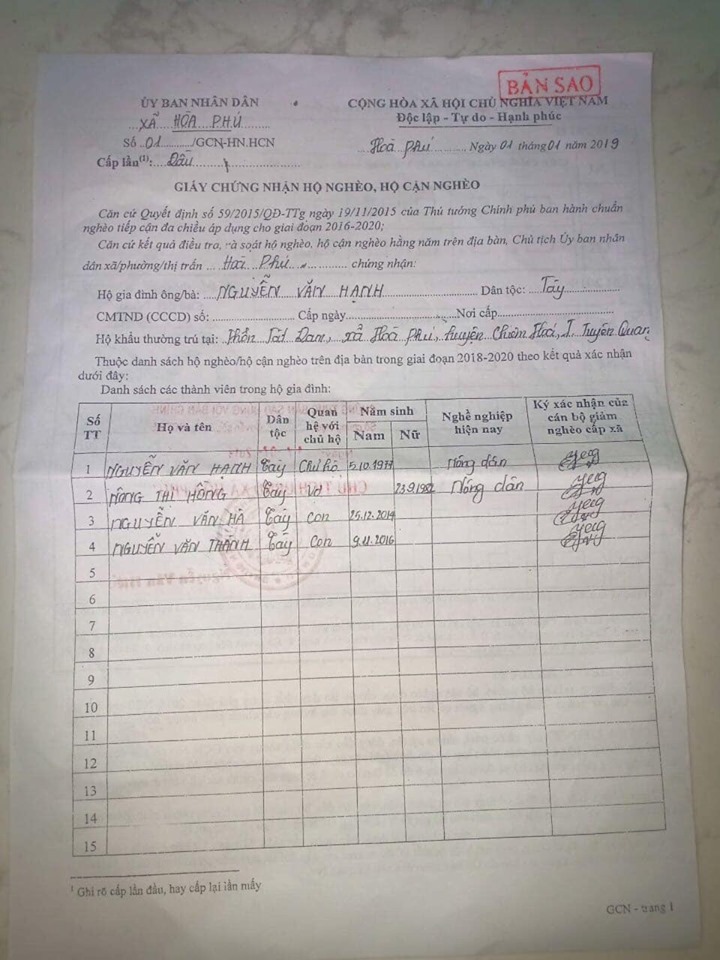 BẢN SAO
ỦY BAN NHÂN DÂN
XÃ HÒA PHÚ
Số .01........./GCN-HN.HCN
Cấp lần(1): Đầu
CỘNG HÒA XÃ HỘI CHỦ NGHĨA VIỆT NAM
Độc lập - Tự do - Hạnh phúc
Hoà Phú, Ngày 01 tháng 01 năm 2019
GIẤY CHỨNG NHẬN HỘ NGHÈO, HỘ CẬN NGHÈO
Căn cứ Quyết định số 59/2015/QĐ-TTg ngày 19/11/2015 của Thủ tướng Chính phủ ban hành chuẩn
nghèo tiếp cận đa chiều áp dụng cho giai đoạn 2016-2020;
Căn cứ kết quả điều tra, rà soát hộ nghèo, hộ cận nghèo hằng năm trên địa bàn, Chủ tịch Ủy ban nhân
dân xã/phường/thị trấn Hoà Phú chứng nhận:
Hộ gia đình ông/bà: NGUYỄN VĂN HẠNH Dân tộc: Tày
CMTND (CCCD) số: Cấp ngày Nơi cấp
Hộ khẩu thường trú tại: Thôn Đan, xã Hoà Phú, huyện Chiêm Hoá, T. Tuyên Quang
Thuộc danh sách hộ nghèo/hộ cận nghèo trên địa bàn trong giai đoạn 2018-2020 theo kết quả xác nhận
dưới đây:
Danh sách các thành viên trong hộ gia đình:
Số TT Họ và tên Dân tộc Quan hệ với chủ hộ Năm sinh Nam Nữ Nghề nghiệp hiện nay Ký xác nhận của cán bộ giảm nghèo cấp xã
1 NGUYỄN VĂN HẠNH Tày Chủ hộ Nông dân
2 NÔNG THỊ HỒNG Tày Vợ 23.9.1982 Nông dân
3 NGUYỄN VĂN HÀ Tày Con 25.12.2014
4 NGUYỄN VĂN THÀNH Tày Con 9.11.2016
5
6
7
8
9
10
11
12
13
14
15
1 Ghi rõ cấp lần đầu, hay cấp lại lần mấy
GCN - trang 1